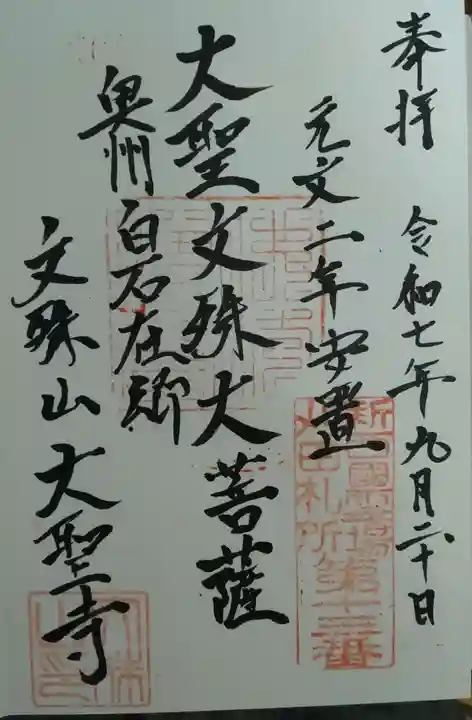 奉拝
令和七年九月二十日
元文二年安置
大聖文殊大菩薩
奥州白石在郷
文殊山大聖寺
第十三番
札所